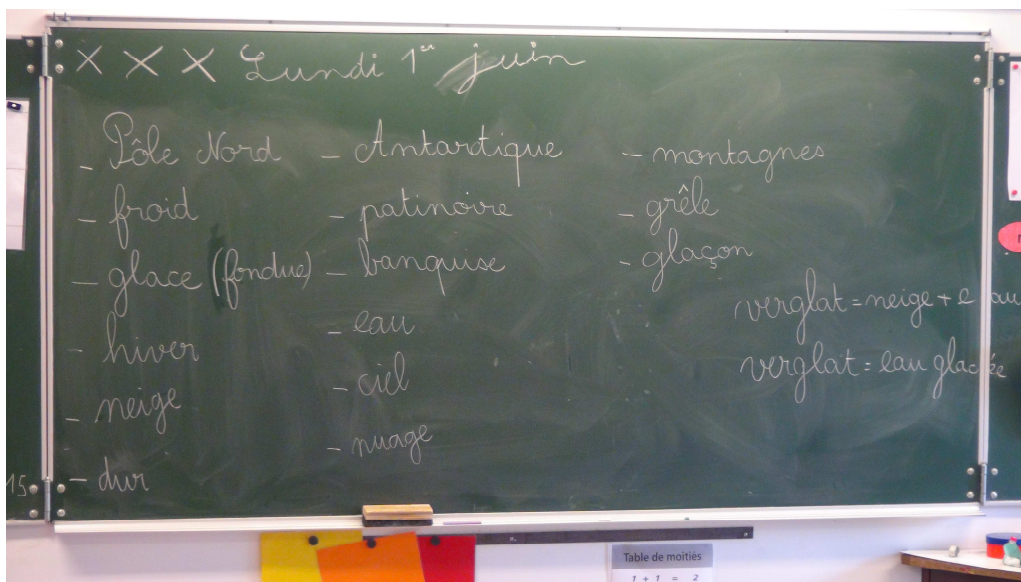 x x x Lundi 1er juin
- Pôle Nord
- froid
- glace (fondue)
- hiver
- neige
- dur
- Antartique
- patinoire
- banquise
- eau
- ciel
- nuage
- montagnes
- grêle
- glaçon
verglat = neige + eau
verglat = eau glacée
15
Table de moitiés
1 + 1 = 2